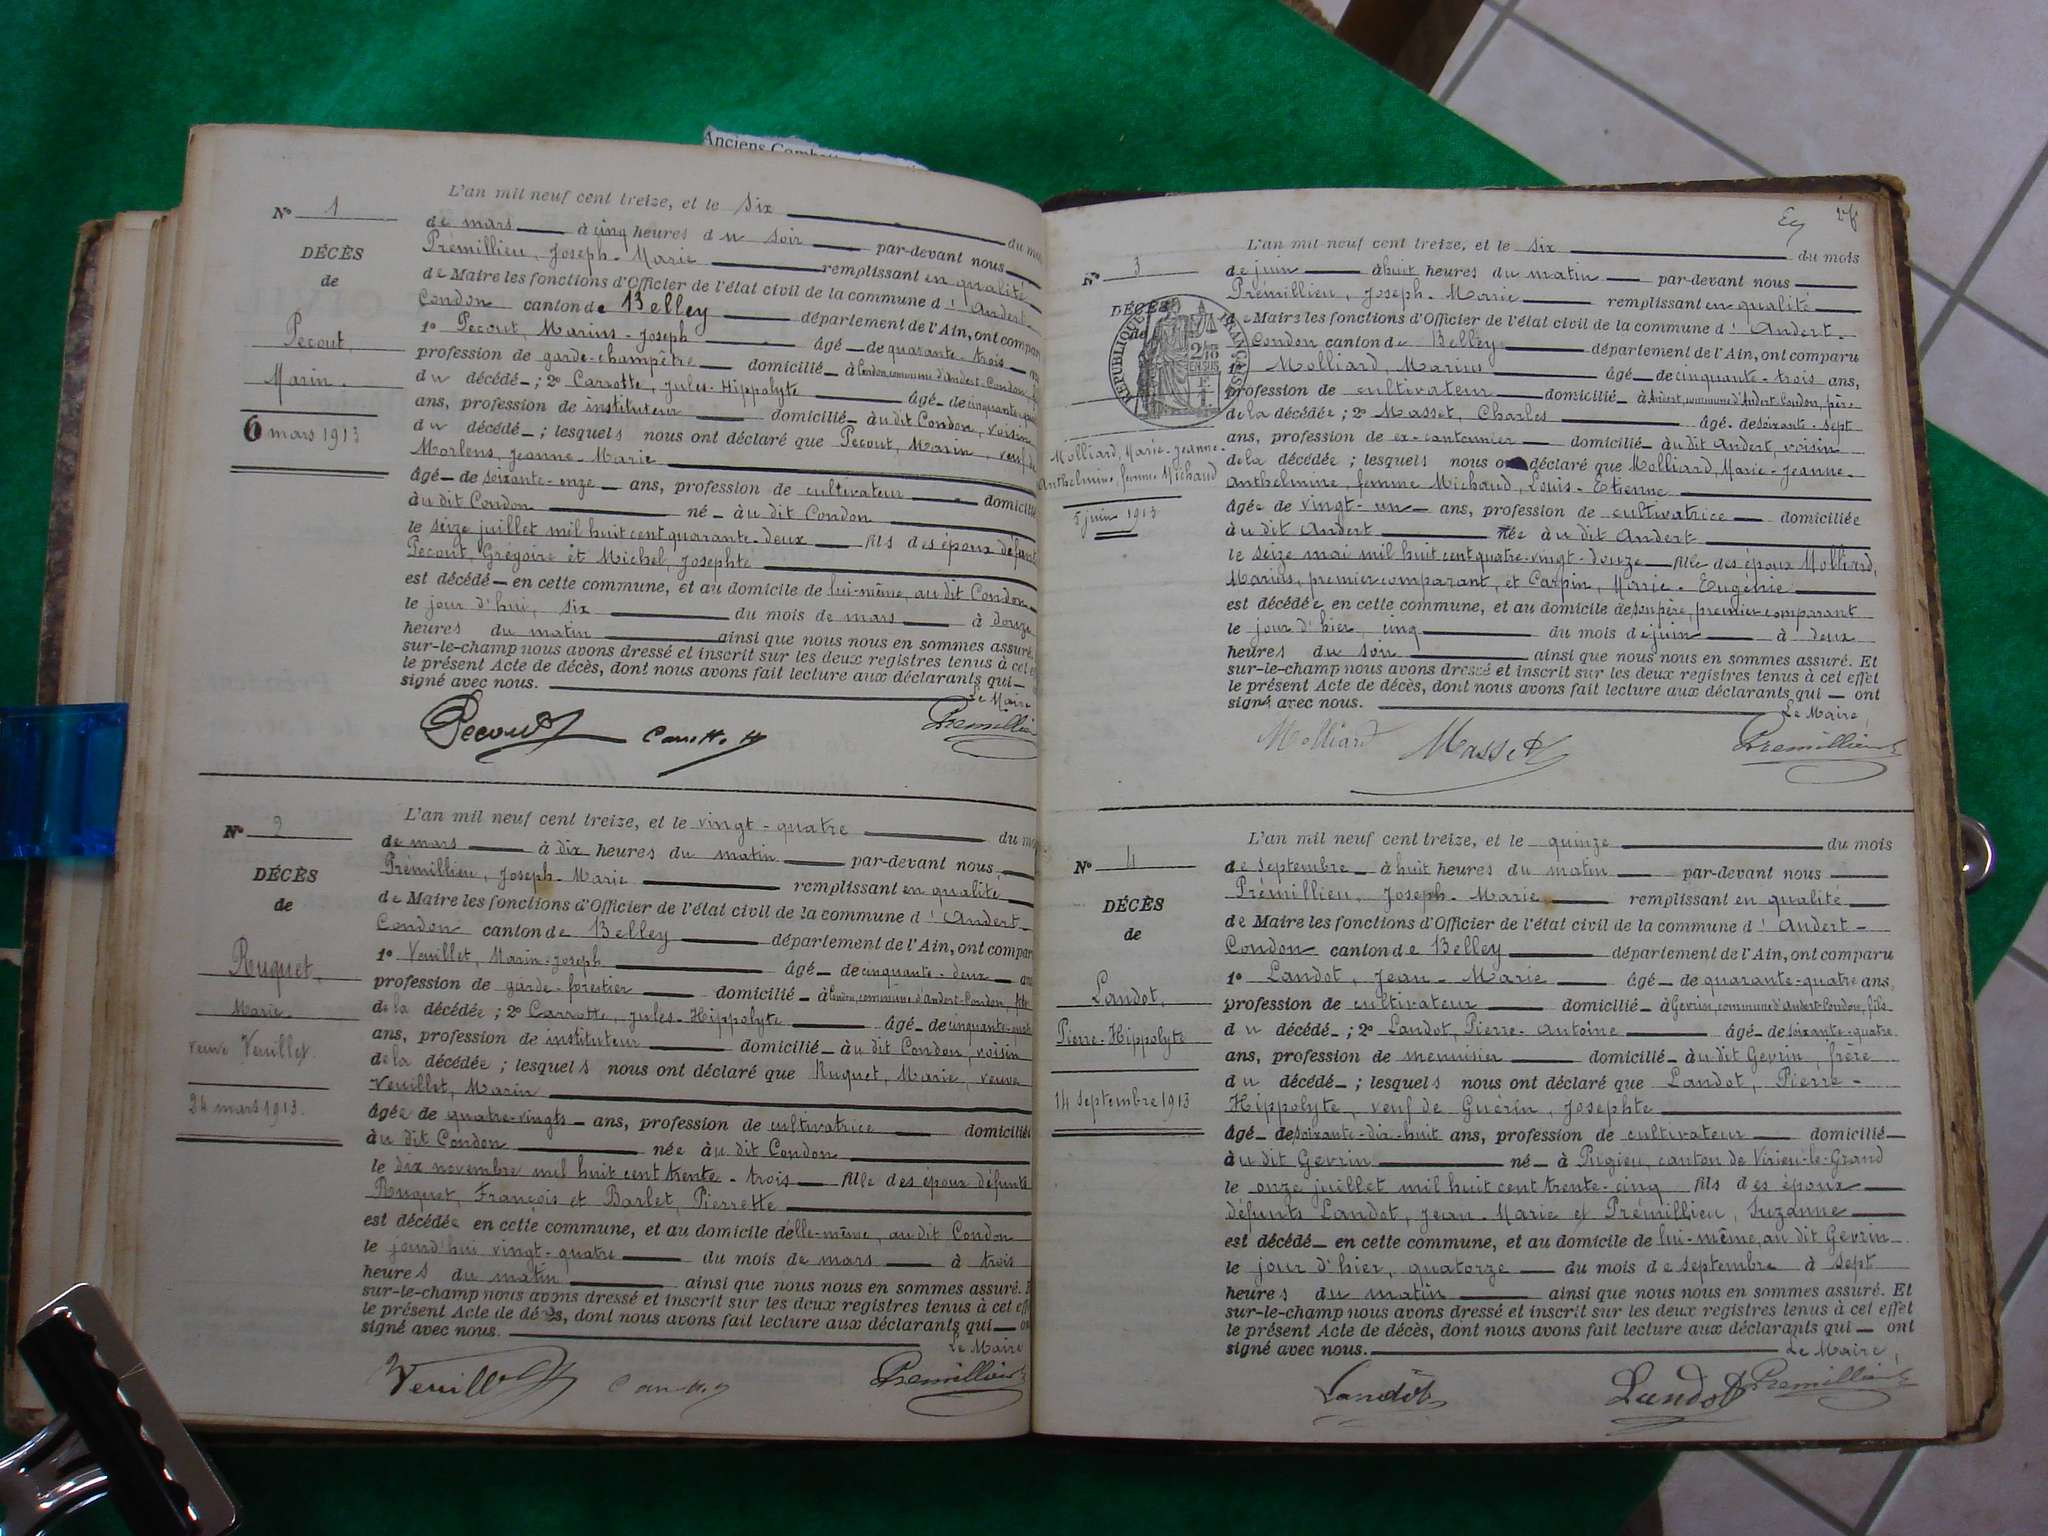 Anciens
L'an mil neuf cent treize, et le six du
N° 1
de mars à cinq heures du soir par-devant nous
DÉCÈS
Prémillieu, Joseph-Marie remplissant en qualité
de
de Maire les fonctions d'Officier de l'état civil de la commune d' Andert-
Condon canton de Belley département de l'Ain, ont compar
Pecout,
1° Pecout, Marius-Joseph âgé de quarante-trois
profession de garde-champêtre domicilié à Condon, commune d'Andert-Condon,
Marin.
du décédé ; 2° Carrotte, Jules-Hippolyte âgé de cinquante
ans, profession de instituteur domicilié au dit Condon, voisin
6 mars 1913
du décédé ; lesquels nous ont déclaré que Pecout, Marin, veuf de
Morlens, Jeanne-Marie
âgé de soixante-onze ans, profession de cultivateur domicilié
au dit Condon né au dit Condon
le seize juillet mil huit cent quarante-deux fils des époux
Pecout, Grégoire et Michel, Josephte
est décédé en cette commune, et au domicile de lui-même, au dit Condon
le jour d'hui, six du mois de mars à douze
heures du matin ainsi que nous nous en sommes assuré.
sur-le-champ nous avons dressé et inscrit sur les deux registres tenus à cet
le présent Acte de décès, dont nous avons fait lecture aux déclarants qui
signé avec nous.
Le Maire
Pecout Prémillieu
L'an mil neuf cent treize, et le vingt-quatre du
N° 2
de mars à dix heures du matin par-devant nous,
DÉCÈS
Prémillieu, Joseph-Marie remplissant en qualité
de
de Maire les fonctions d'Officier de l'état civil de la commune d' Andert-
Condon canton de Belley département de l'Ain, ont compar
Ruguet,
1° Veuillet, Marin-Joseph âgé de cinquante-deux
profession de garde-forestier domicilié à Condon, commune d'Andert-Condon, fils
Marie
de la décédée ; 2° Carrotte, Jules-Hippolyte âgé de cinquante
ans, profession de instituteur domicilié au dit Condon, voisin
veuve Veuillet.
de la décédée ; lesquels nous ont déclaré que Ruguet, Marie, veuve
Veuillet, Marin
24 mars 1913.
âgée de quatre-vingts ans, profession de cultivatrice domiciliée
au dit Condon née au dit Condon
le dix novembre mil huit cent trente-trois fille des époux défunts
Ruguet, François et Barlet, Pierrette
est décédée en cette commune, et au domicile d'elle-même, au dit Condon
le jourd'hui vingt-quatre du mois de mars à trois
heures du matin ainsi que nous nous en sommes assuré.
sur-le-champ nous avons dressé et inscrit sur les deux registres tenus à cet
le présent Acte de décès, dont nous avons fait lecture aux déclarants qui
signé avec nous.
Le Maire
Veuillet Prémillieu
L'an mil neuf cent treize, et le six du mois
N° 3
de juin à huit heures du matin par-devant nous
Prémillieu, Joseph-Marie remplissant en qualité
DÉCÈS
de
de Maire les fonctions d'Officier de l'état civil de la commune d' Andert-
Condon canton de Belley département de l'Ain, ont comparu
1° Molliard, Marius âgé de cinquante-trois ans,
profession de cultivateur domicilié à Andert, commune d'Andert-Condon, père
de la décédée ; 2° Masset, Charles âgé de soixante-sept
ans, profession de ex-cantonnier domicilié au dit Andert, voisin
Molliard, Marie-Jeanne-
de la décédée ; lesquels nous ont déclaré que Molliard, Marie-Jeanne-
Anthelmine, femme Michaud
Anthelmine, femme Michaud, Louis-Etienne
5 juin 1913
âgée de vingt-un ans, profession de cultivatrice domiciliée
au dit Andert née au dit Andert
le seize mai mil huit cent quatre-vingt-douze fille des époux Molliard,
Marius, premier comparant, et Carpin, Marie-Eugénie
est décédée en cette commune, et au domicile de son père, premier comparant
le jour d'hier, cinq du mois de juin à deux
heures du soir ainsi que nous nous en sommes assuré. Et
sur-le-champ nous avons dressé et inscrit sur les deux registres tenus à cet effet
le présent Acte de décès, dont nous avons fait lecture aux déclarants qui ont
signé avec nous.
Le Maire,
Molliard Masset Prémillieu
L'an mil neuf cent treize, et le quinze du mois
N° 4
de septembre à huit heures du matin par-devant nous
Prémillieu, Joseph-Marie remplissant en qualité
DÉCÈS
de Maire les fonctions d'Officier de l'état civil de la commune d' Andert-
de
Condon canton de Belley département de l'Ain, ont comparu
1° Landot, Jean-Marie âgé de quarante-quatre ans,
Landot,
profession de cultivateur domicilié à Gevrin, commune d'Andert-Condon, fils
du décédé ; 2° Landot, Pierre-Antoine âgé de soixante-quatre
Pierre-Hippolyte
ans, profession de menuisier domicilié au dit Gevrin, frère
du décédé ; lesquels nous ont déclaré que Landot, Pierre-
14 septembre 1913
Hippolyte, veuf de Guérin, Josephte
âgé de soixante-dix-huit ans, profession de cultivateur domicilié
au dit Gevrin né à Pugieu, canton de Virieu-le-Grand
le onze juillet mil huit cent trente-cinq fils des époux
défunts Landot, Jean-Marie et Prémillieu, Suzanne
est décédé en cette commune, et au domicile de lui-même, au dit Gevrin
le jour d'hier, quatorze du mois de septembre à sept
heures du matin ainsi que nous nous en sommes assuré. Et
sur-le-champ nous avons dressé et inscrit sur les deux registres tenus à cet effet
le présent Acte de décès, dont nous avons fait lecture aux déclarants qui ont
signé avec nous.
Le Maire,
Landot Landot Prémillieu